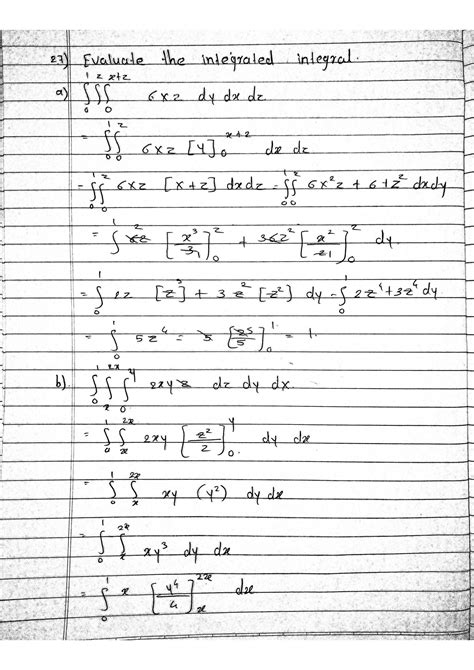 27) Evaluate the integrated integral.
a) ∫₀¹ ∫₀ᶻ ∫₀ˣ⁺ᶻ 6xz dy dx dz
= ∫₀¹ ∫₀ᶻ 6xz [y]₀ˣ⁺ᶻ dx dz
= ∫₀¹ ∫₀ᶻ 6xz [x+z] dx dz = ∫₀¹ ∫₀ᶻ 6x²z + 6+z² dx dy
= ∫₀¹ 6z [x³/3]₀ᶻ + 6z² [x²/2]₀ᶻ dy
= ∫₀¹ 2z [z³] + 3z² [z²] dy = ∫₀¹ 2z⁴ + 3z⁴ dy
= ∫₀¹ 5z⁴ = 5 [z⁵/5]₀¹ = 1.
b) ∫₀¹ ∫ₓ²ˣ ∫₀ʸ 2xyz dz dy dx
= ∫₀¹ ∫ₓ²ˣ 2xy [z²/2]₀ʸ dy dx
= ∫₀¹ ∫ₓ²ˣ xy (y²) dy dx
= ∫₀¹ ∫ₓ²ˣ xy³ dy dx
= ∫₀¹ x [y⁴/4]ₓ²ˣ dx